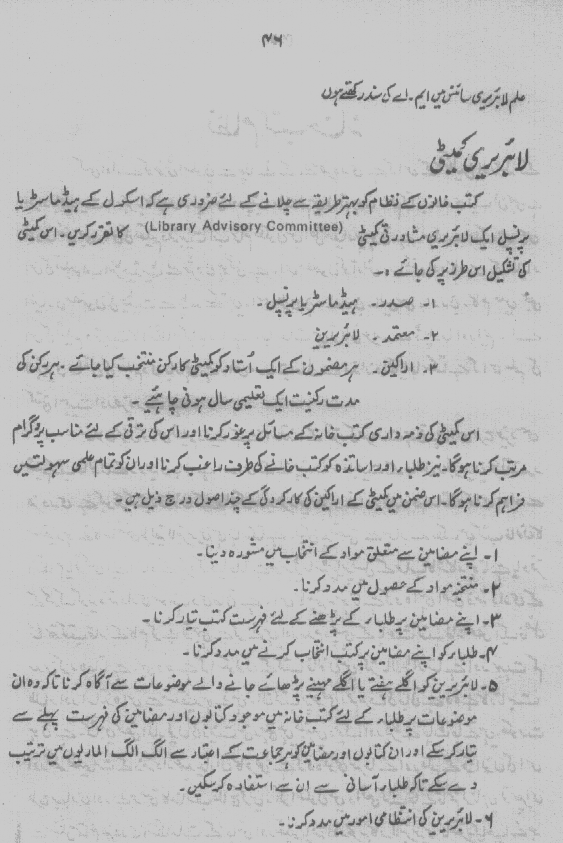 ۴۶
علم لائبریری سائنس میں ایم۔اے کی سند رکھتے ہوں
لائبریری کمیٹی
کتب خانوں کے نظام کو بہتر طریقہ سے چلانے کے لئے ضروری ہے کہ اسکول کے ہیڈ ماسٹر یا
پرنسپل ایک لائبریری مشاورتی کمیٹی (Library Advisory Committee) کا تقرر کریں۔ اس کمیٹی
کی تشکیل اس طرز پر کی جائے :۔
۱۔ صدر۔ ہیڈ ماسٹر یا پرنسپل۔
۲۔ معتمد۔ لائبریرین
۳۔ اراکین۔ ہر مضمون کے ایک اُستاد کو کمیٹی کا رکن منتخب کیا جائے۔ ہر رکن کی
مدت رکنیت ایک تعلیمی سال ہونی چاہئیے۔
اس کمیٹی کی ذمہ داری کتب خانہ کے مسائل پر غور کرنا اور اس کی ترقی کے لئے مناسب پروگرام
مرتب کرنا ہوگا۔ نیز طلباء اور اساتذہ کو کتب خانے کی طرف راغب کرنا اور ان کو تمام علمی سہولتیں
فراہم کرنا ہوگا۔ اس ضمن میں کمیٹی کے اراکین کی کارکردگی کے چند اصول درج ذیل ہیں۔
۱۔ اپنے مضامین سے متعلق مواد کے انتخاب میں مشورہ دینا۔
۲۔ منتخبہ مواد کے حصول میں مدد کرنا۔
۳۔ اپنے مضامین پر طلباء کے پڑھنے کے لئے فہرست کتب تیار کرنا۔
۴۔ طلباء کو اپنے مضامین پر کتب انتخاب کرنے میں مدد کرنا۔
۵۔ لائبریرین کو اگلے ہفتے یا اگلے مہینے پڑھائے جانے والے موضوعات سے آگاہ کرنا تاکہ وہ ان
موضوعات پر طلباء کے لئے کتب خانہ میں موجود کتابوں اور مضامین کی فہرست پہلے سے
تیار کر سکے اور ان کتابوں اور مضامین کو ہر جماعت کے اعتبار سے الگ الگ الماریوں میں ترتیب
دے سکے تاکہ طلباء آسانی سے ان سے استفادہ کر سکیں۔
۶۔ لائبریرین کی انتظامی امور میں مدد کرنا۔